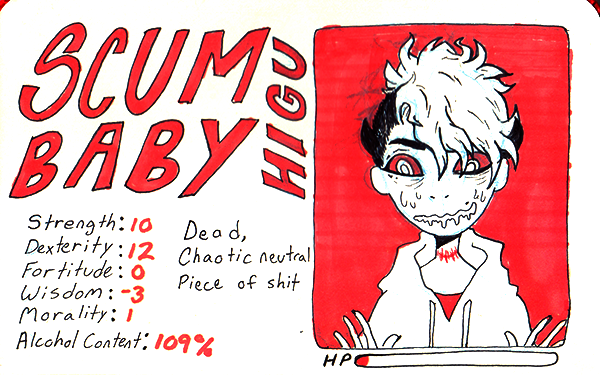 SCUM
BABY
HIGU
Strength: 10
Dexterity: 12
Fortitude: 0
Wisdom: -3
Morality: 1
Alcohol Content: 109%
Dead,
Chaotic neutral
Piece of shit
HP